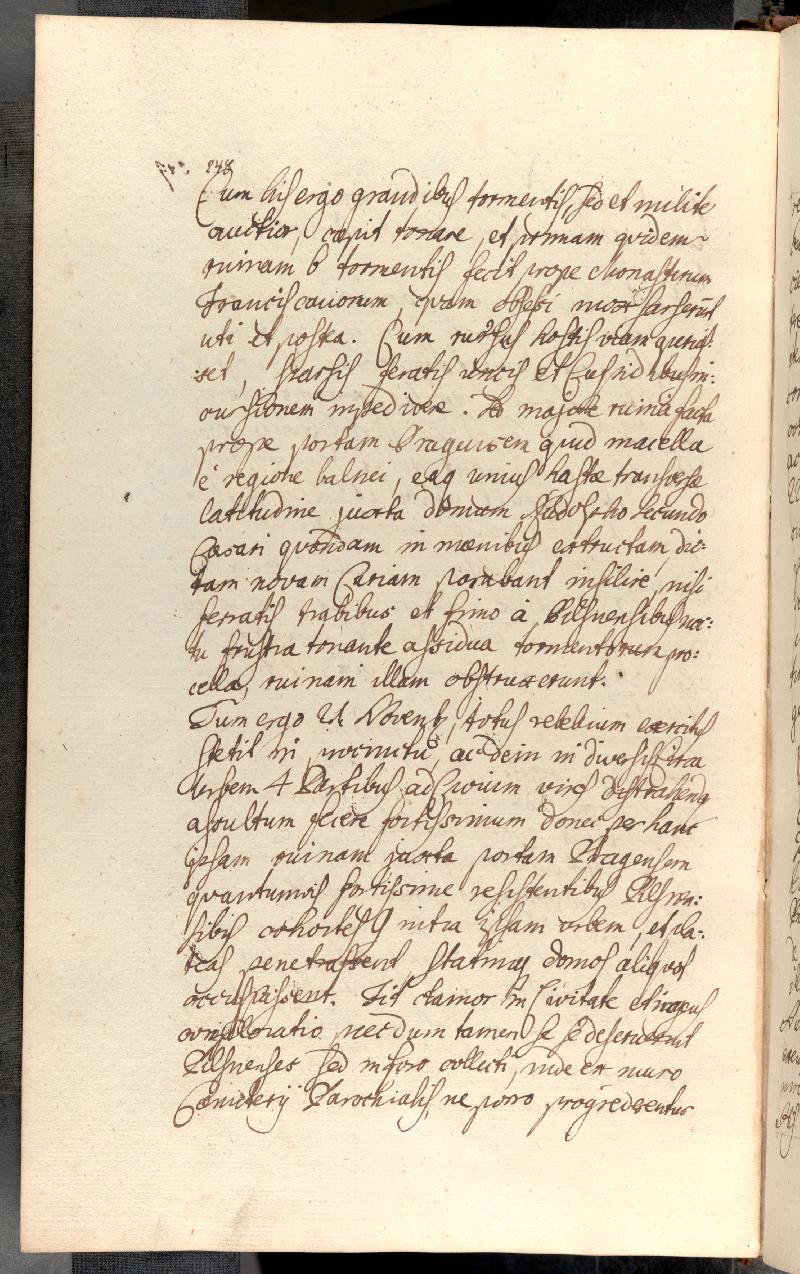 248
Cum his ergo grandibus tormentis, sed et milite
auctior, cæpit tonare, et primam quidem
ruinam 6 tormentis fecit prope Monasterium
Franciscanorum, quam obsessi mox sarserunt
uti et postea. Cum rursus hostis viam
set, sparsis feratis uncis et in:
cursionem impedivere. Sed majore ruina facta
prope portam Pragensem apud macella
è regione balnei, eaq unius hastæ transversæ
latitudine juxta domum Rudolpho secundo
Cæsari quondam in mœnibus extructam, dic:
tam novam Curiam parabant insilire, nisi
ferratis trabibus et fimo à Pilsnensibus noc:
tu frustra tonante assidua tormentorum pro:
cella, ruinam illam obstruxerunt.
Tum ergo 21 Novemb, totus rebelium exercitus
stetit in procinctu, ac dein in diversis circa
Urbem 4 Partibus ad Civium vires distrahend
assultum fecere fortissimum donec per hanc
ipsam ruinam juxta portam Pragensem
quantumvis fortissime resistentibus Pilsnen:
sibus cohortes 9 intra ipsam urbem, et pla:
teas penetrassent, statimq domos aliquot
occupassent. Fit clamor in Civitate
comploratio, necdum tamen se deseruerunt
Pilsnenses sed in foro collecti, inde ex muro
Cæmeterÿ Parochialis, ne porro progrederentur